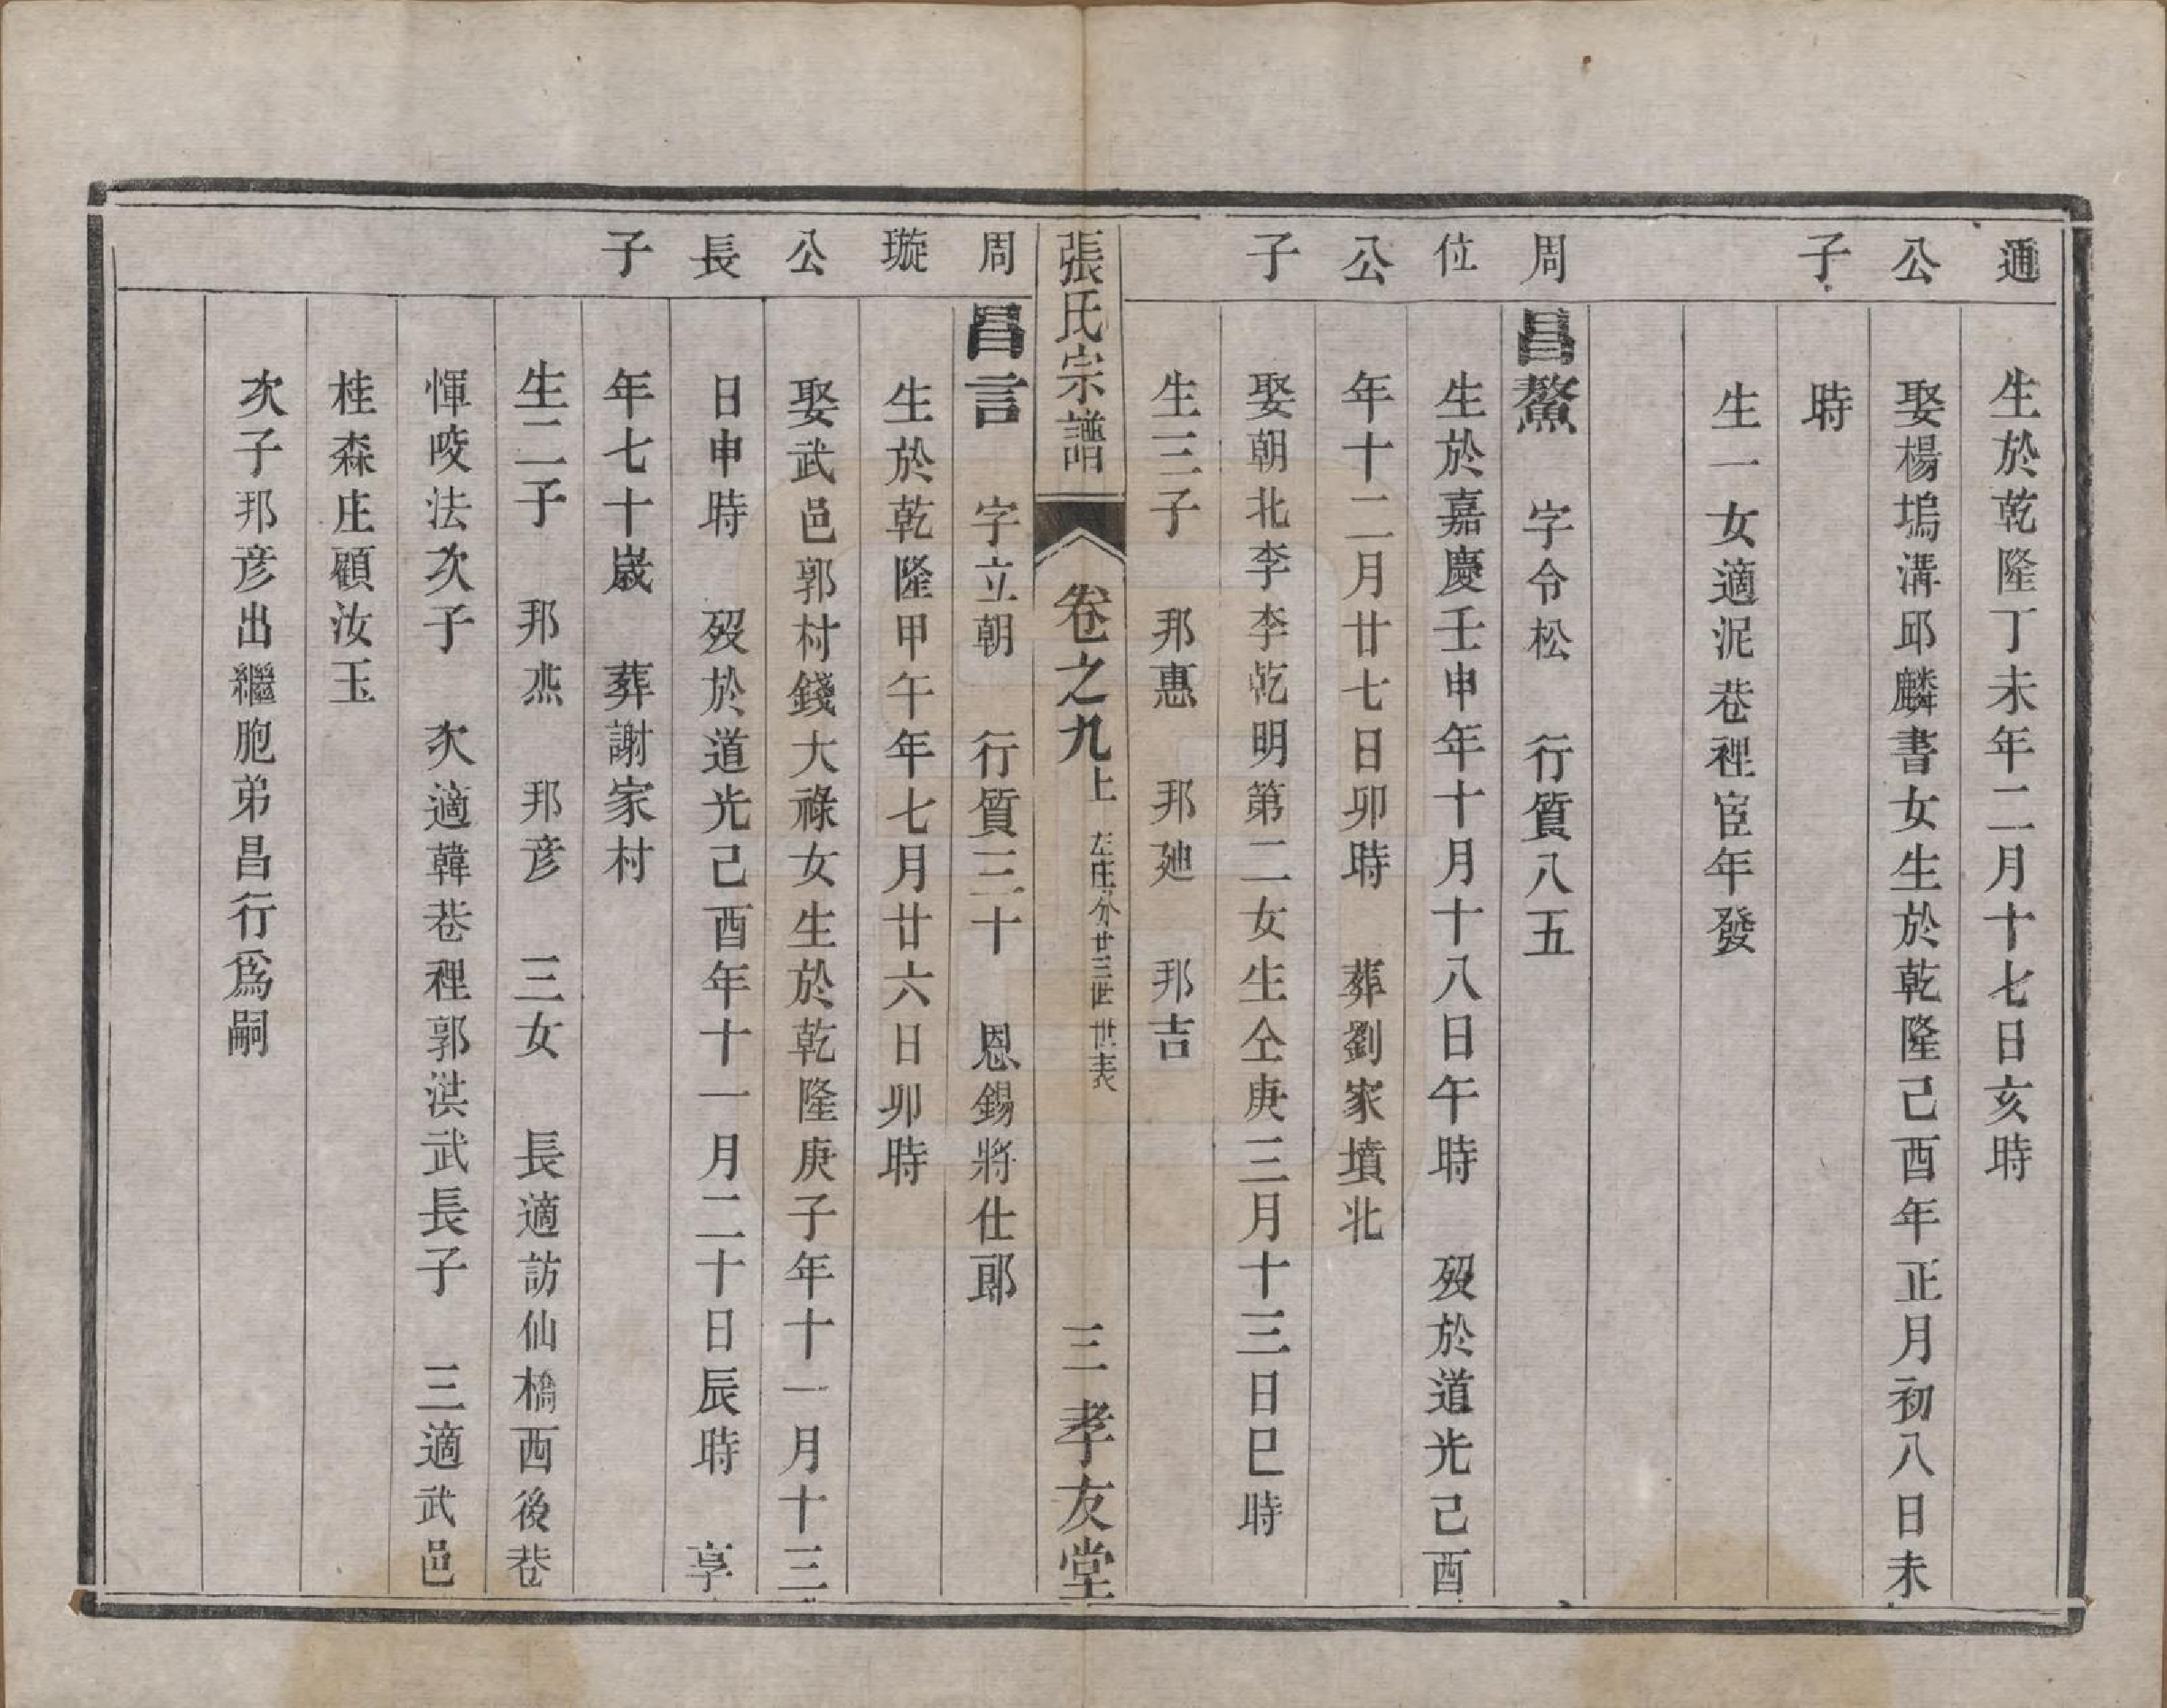 通公子
生於乾隆丁未年二月十七日亥時
娶楊塢溝邱麟書女生於乾隆己酉年正月初八日未
時
生一女適泥巷裡宦年發
周位公子
昌鰲　字令松　行質八五
生於嘉慶壬申年十月十八日午時　歿於道光己酉
年十二月廿七日卯時　葬劉家墳北
娶朝北李李乾明第二女生仝庚三月十三日巳時
生三子　邦惠　邦廸　邦吉
張氏宗譜　卷之九上　左庄分廿三世　世表　三　孝友堂
周璇公長子
昌言　字立朝　行質三十　恩錫將仕郎
生於乾隆甲午年七月廿六日卯時
娶武邑郭村錢大祿女生於乾隆庚子年十一月十三
日申時　歿於道光己酉年十一月二十日辰時　享
年七十歲　葬謝家村
生二子　邦烝　邦彦　三女　長適訪仙橋西後巷
惲咬法次子　次適韓巷裡郭洪武長子　三適武邑
桂森庄顧汝玉
次子邦彦出繼胞弟昌行爲嗣